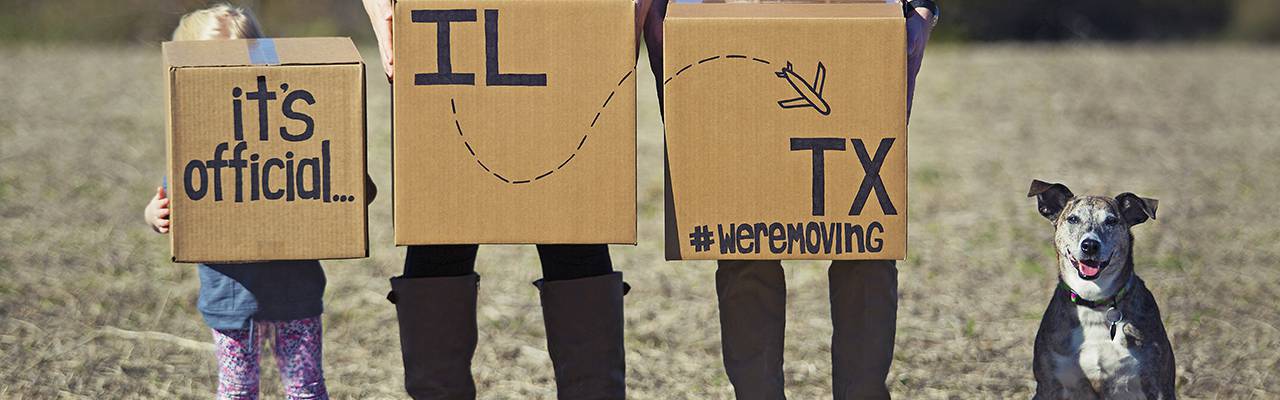 it's
official...
IL
TX
#WEREMOVING